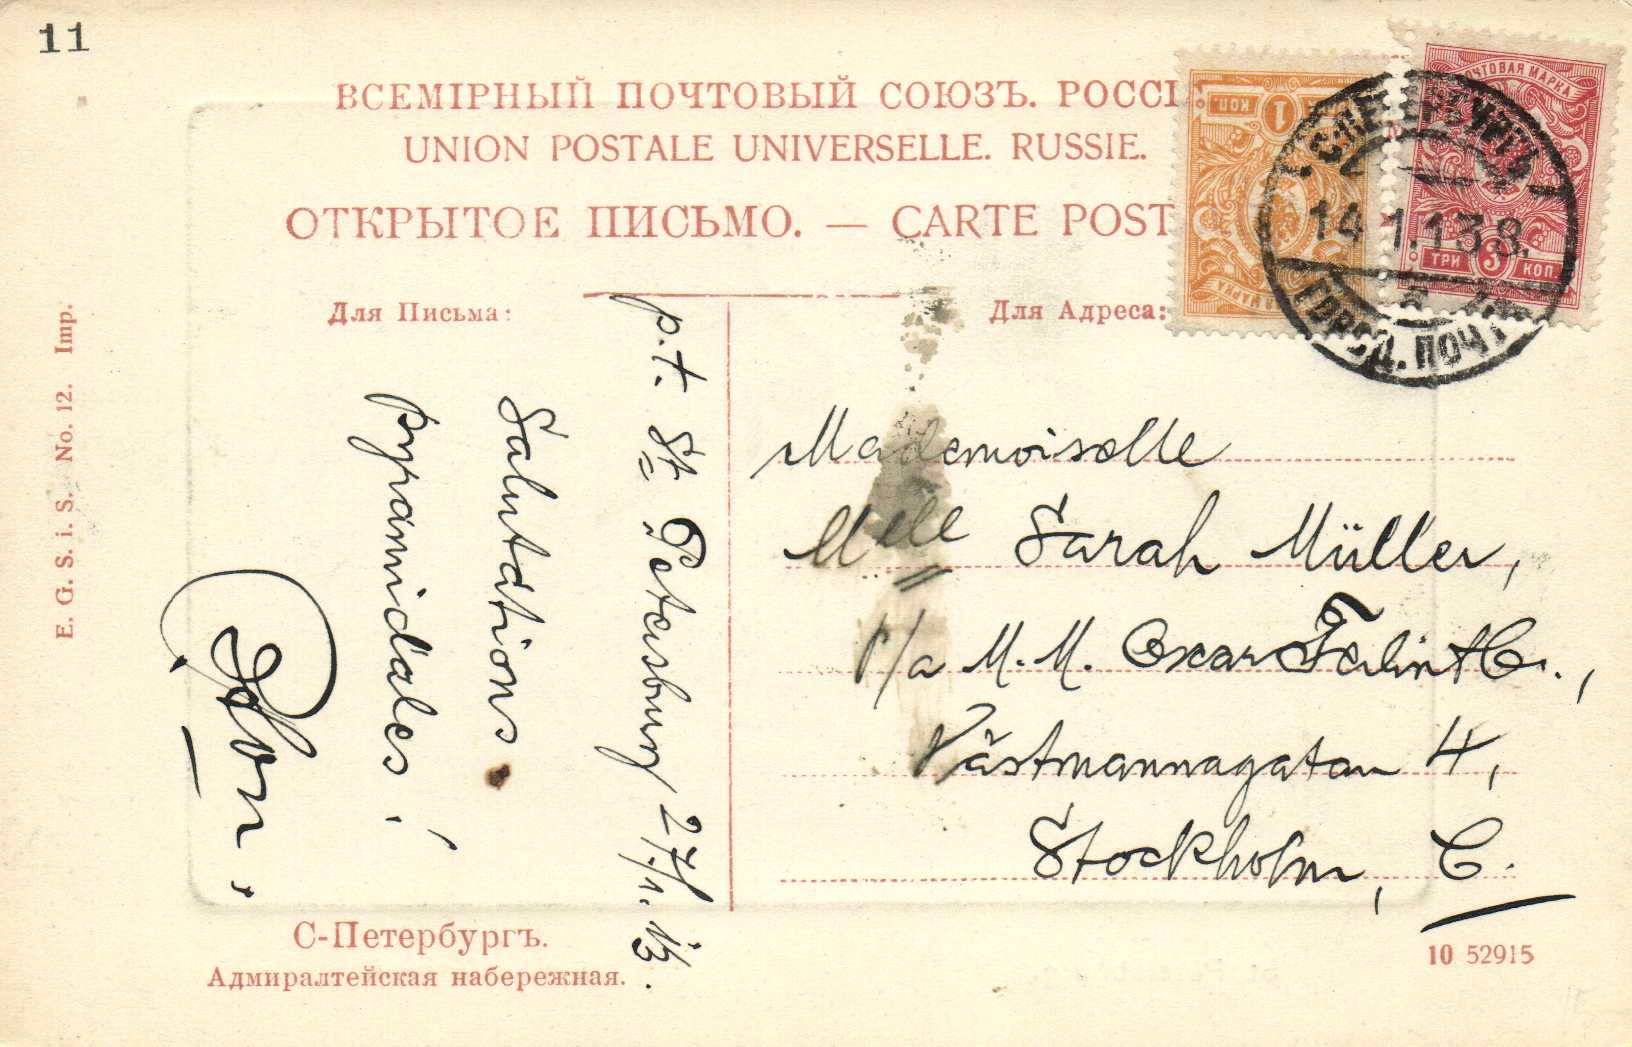 11
ВСЕМІРНЫЙ ПОЧТОВЫЙ СОЮЗЪ. РОССІ
UNION POSTALE UNIVERSELLE. RUSSIE.
ОТКРЫТОЕ ПИСЬМО. — CARTE POST
Для Письма:
Для Адреса:
ПОЧТОВАЯ МАРКА
1 КОП.
ТРИ 3 КОП.
14.1.13 8.
p.t. St Petersburg 27/1.13.
Salutations
pyramidales!
Mademoiselle
Mlle Sarah Müller,
M.M. Oscar
Västmannagatan 4,
Stockholm, C.
E. G. S. i. S. No. 12. Imp.
С-Петербургъ.
Адмиралтейская набережная.
10 52915